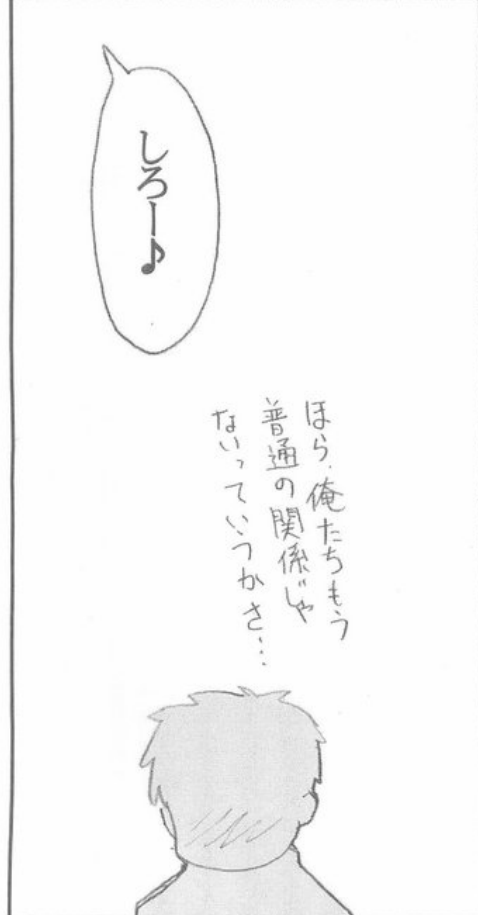 しろー♪
ほら、俺たちもう
普通の関係じゃ
ないっていうかさ…